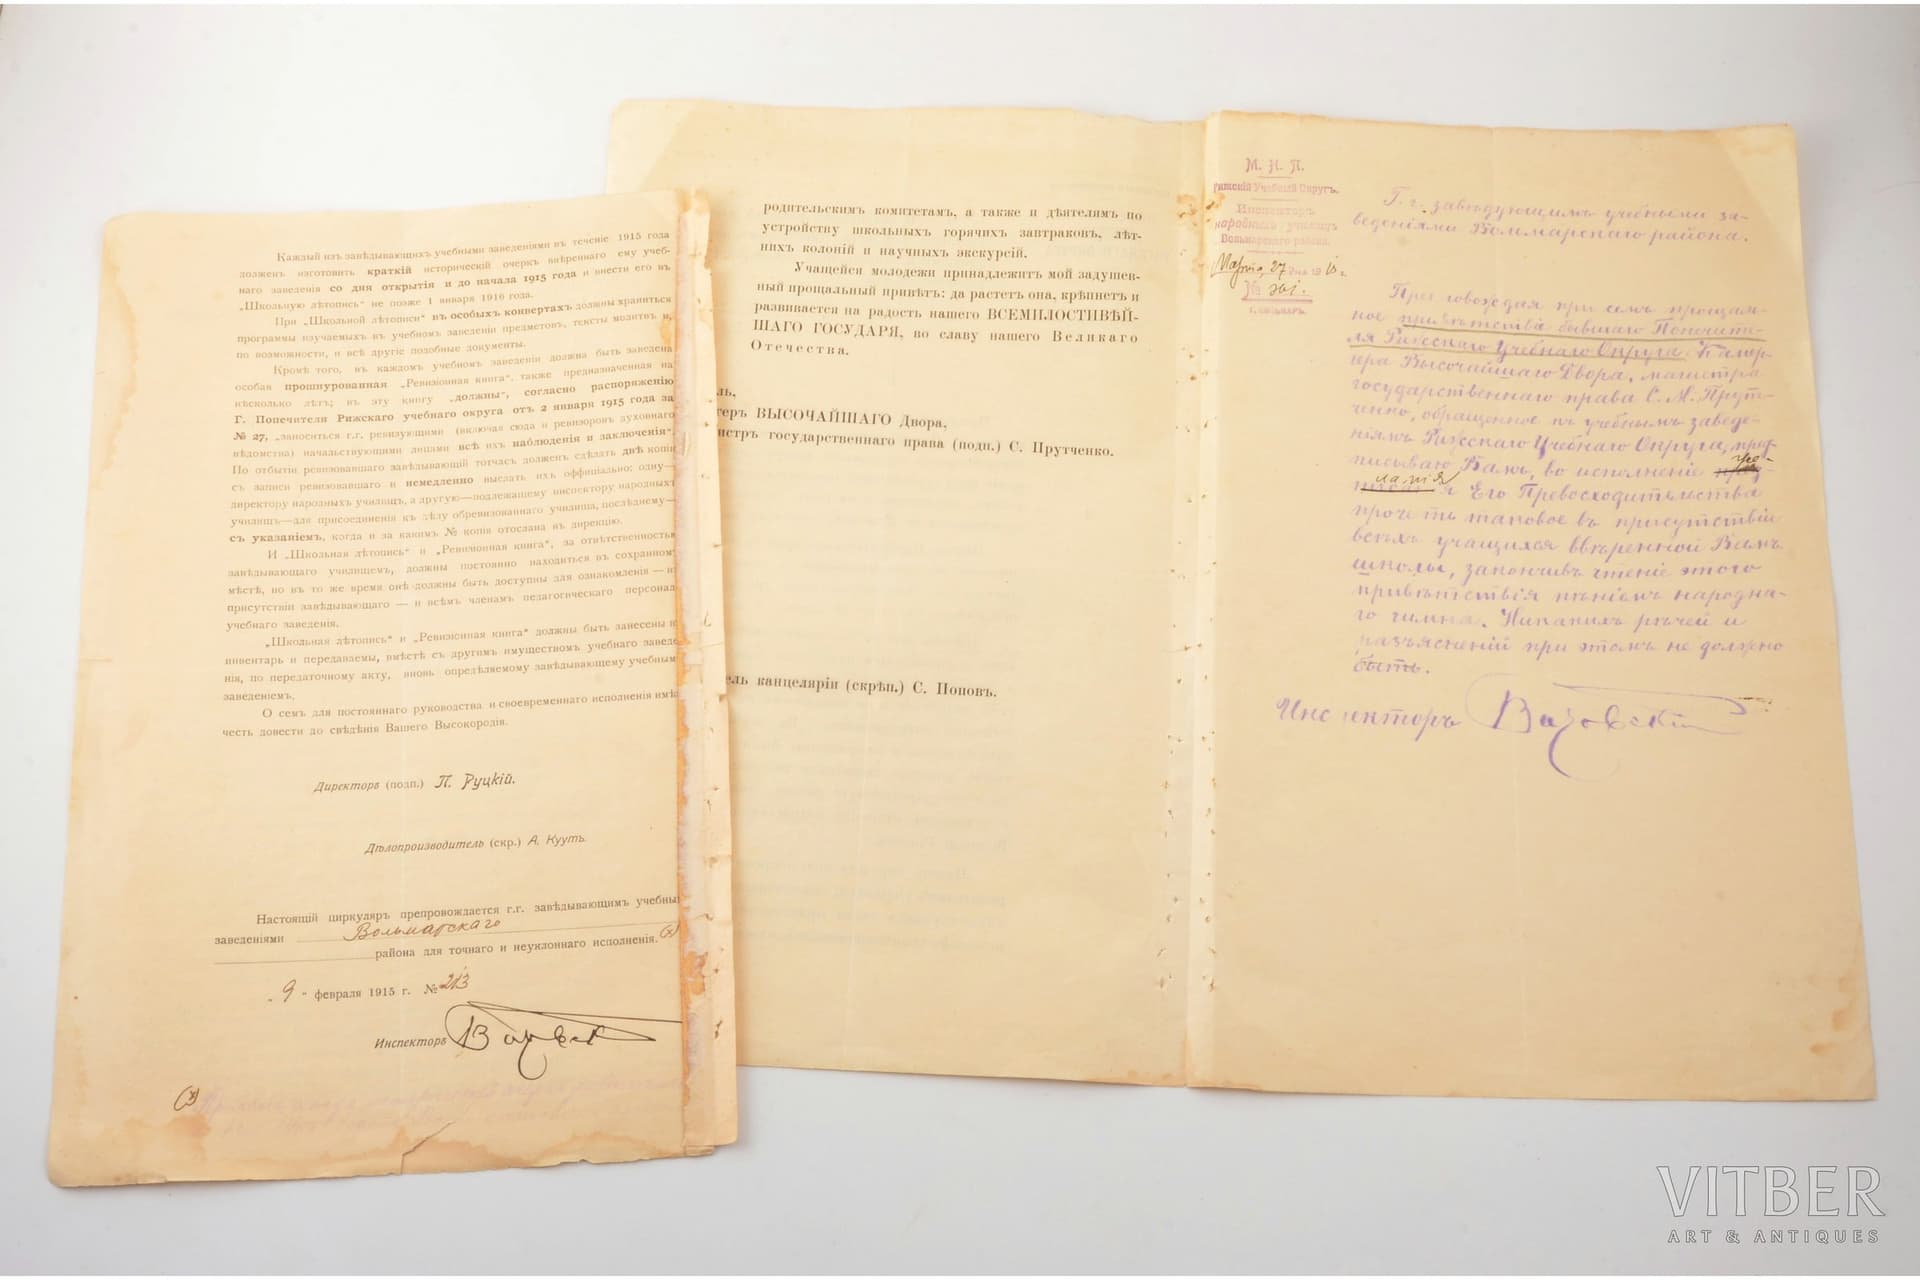 Каждый изъ завѣдывающихъ учебными заведеніями въ теченіе 1915 года
долженъ изготовить краткій историческій очеркъ ввѣреннаго ему учеб-
наго заведенія со дня открытія и до начала 1915 года и внести его въ
„Школьную лѣтопись“ не позже 1 января 1916 года.
При „Школьной лѣтописи“ въ особыхъ конвертахъ должны храниться
программы изучаемыхъ въ учебномъ заведеніи предметовъ, тексты молитвъ и,
по возможности, и всѣ другіе подобные документы.
Кромѣ того, въ каждомъ учебномъ заведеніи должна быть заведена
особая прошнурованная „Ревизіонная книга“, также предназначенная на
нѣсколько лѣтъ; въ эту книгу „должны“, согласно распоряженію
Г. Попечителя Рижскаго учебнаго округа отъ 2 января 1915 года за
№ 27, „заноситься г.г. ревизующими (включая сюда и ревизоровъ духовнаго
вѣдомства) начальствующими лицами всѣ ихъ наблюденія и заключенія“.
По отбытіи ревизовавшаго завѣдывающій тотчасъ долженъ сдѣлать двѣ копіи
съ записи ревизовавшаго и немедленно выслать ихъ оффиціально: одну—
директору народныхъ училищъ, а другую—подлежащему инспектору народныхъ
училищъ—для присоединенія къ дѣлу обревизованнаго училища, послѣднему—
съ указаніемъ, когда и за какимъ № копія отослана въ дирекцію.
И „Школьная лѣтопись“ и „Ревизіонная книга“, за отвѣтственностью
завѣдывающаго училищемъ, должны постоянно находиться въ сохранномъ
мѣстѣ, но въ то же время онѣ должны быть доступны для ознакомленія — въ
присутствіи завѣдывающаго — и всѣмъ членамъ педагогическаго персонал
учебнаго заведенія.
„Школьная лѣтопись“ и „Ревизіонная книга“ должны быть занесены в
инвентарь и передаваемы, вмѣстѣ съ другимъ имуществомъ учебнаго заведе
нія, по передаточному акту, вновь опредѣляемому завѣдывающему учебным
заведеніемъ.
О семъ для постояннаго руководства и своевременнаго исполненія имѣ
честь довести до свѣдѣнія Вашего Высокородія.
Директоръ (подп.) П. Руцкій.
Дѣлопроизводитель (скр.) А. Куутъ.
Настоящій циркуляръ препровождается г.г. завѣдывающимъ учебны
заведеніями Вольмарскаго
района для точнаго и неуклоннаго исполненія. (x)
„ 9 „ февраля 1915 г. № 213
Инспекторъ
(x)
родительскимъ комитетамъ, а также и дѣятелямъ по
устройству школьныхъ горячихъ завтраковъ, лѣт-
нихъ колоній и научныхъ экскурсій.
Учащейся молодежи принадлежитъ мой задушев-
ный прощальный привѣтъ: да растетъ она, крѣпнетъ и
развивается на радость нашего ВСЕМИЛОСТИВѢЙ-
ШАГО ГОСУДАРЯ, во славу нашего Великаго
Отечества.
ль,
геръ ВЫСОЧАЙШАГО Двора,
истръ государственнаго права (подп.) С. Прутченко.
ель канцеляріи (скрѣп.) С. Поповъ.
М. Н. П.
Рижскій Учебный Округъ.
Инспекторъ
народныхъ училищъ
Вольмарскаго района.
Марта, 27 дня 191
№ 361.
г. Вольмаръ.
Г. г. завѣдующимъ учебными за-
веденіями Вольмарскаго района.
Препровождая при семъ прощаль-
ное привѣтствіе бывшаго Попечите-
ля Рижскаго Учебнаго Округа Камер-
гера Высочайшаго Двора, магистра
государственнаго права С. М. Прут-
ченко, обращенное къ учебнымъ заведе-
ніямъ Рижскаго Учебнаго Округа, пред-
писываю Вамъ, во исполненіе же-
ланія Его Превосходительства
прочесть таковое въ присутствіи
всѣхъ учащихся ввѣренной Вамъ
школы, закончивъ чтеніе этого
привѣтствія пѣніемъ народна-
го гимна. Никакихъ рѣчей и
разъясненій при этомъ не должно
быть.
Инспекторъ
VITBER
ART & ANTIQUES